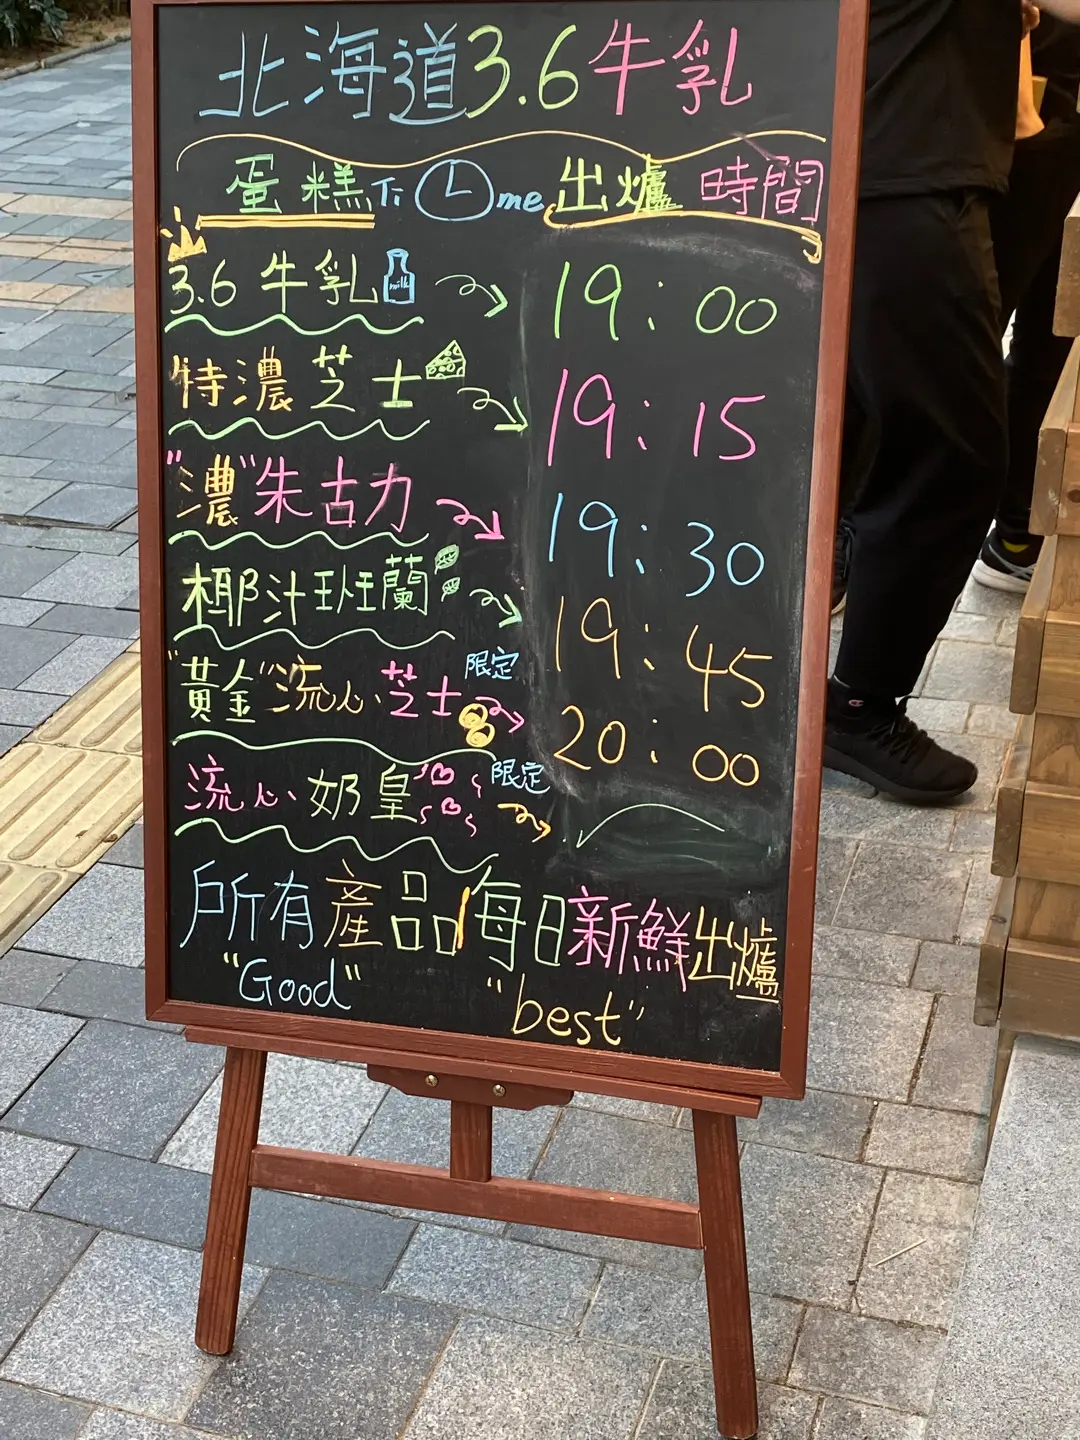 北海道3.6牛乳
蛋糕Time 出爐時間
3.6牛乳 milk 19:00
特濃芝士 19:15
"濃"朱古力 19:30
椰汁班蘭 19:45
"黃金"流心芝士 限定 20:00
流心奶皇 限定
所有產品/每日新鮮出爐
"Good" "best"